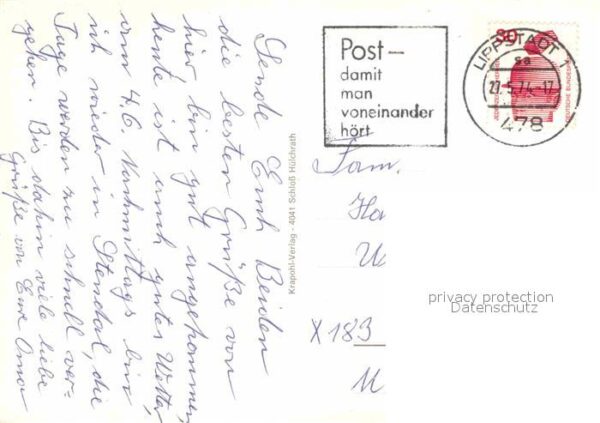 Sende Euch Beiden
die besten Grüße von
hier bin gut angekommen,
heute ist auch gutes Wetter,
am 4.6. Nachmittags bin
ich wieder in Stendal, die
Tage werden zu schnell ver-
gehen. Bis dahin viele liebe
Grüße von Eure Oma
Krapohl-Verlag - 4041 Schloß Hülchrath
Post–
damit
man
voneinander
hört
LIPPSTADT 1
sa
27.5.74.-17
478
30
DEUTSCHE BUNDESPOST
Fam.
Ha
U
privacy protection
Datenschutz
X 183
M